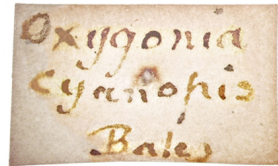 Oxygonia
cyanopis
Bates